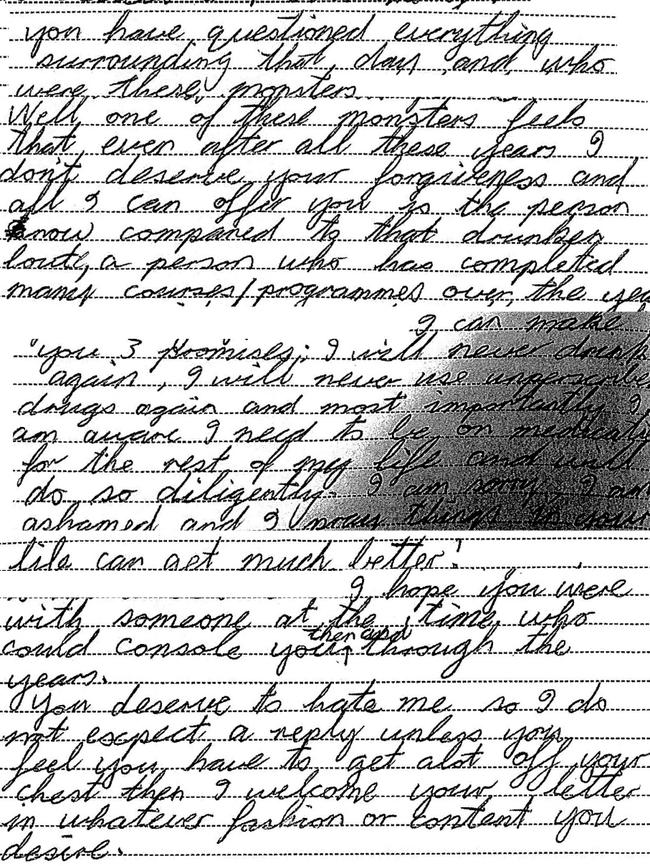 you have questioned everything
surrounding that day and who
were these monsters
Well one of these monsters feels
that even after all these years I
don't deserve your forgiveness and
all I can offer you is the person
I now compared to that drunken
lout, a person who has completed
many courses/programmes over the yea
I can make
"you 3 promises; I will never drink
again, I will never use unperscribe
drugs again and most importantly I
am aware I need to be on medicat
for the rest of my life and will
do so diligently. I am sorry, I am
ashamed and I pray things in your
life can get much better!
I hope you were
with someone at the time who
could console you then and through the
years.
You deserve to hate me so I do
not expect a reply unless you
feel you have to get alot off your
chest then I welcome your letter
in whatever fashion or content you
desire.